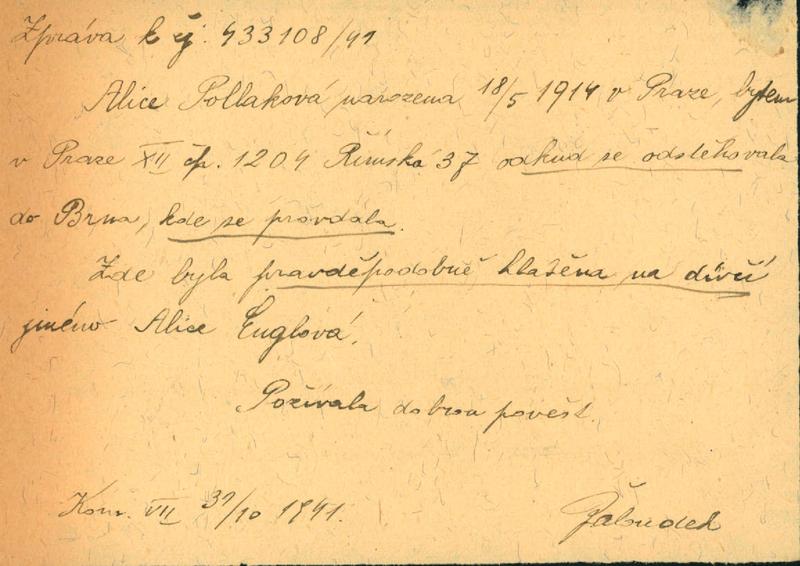 Zpráva k čj. 433108/41
Alice Pollaková narozena 18/5 1914 v Praze, bytem
v Praze XII čp. 1204 Římská 37 odkud se odstěhovala
do Brna, kde se provdala.
Zde byla pravděpodobně hlašéna na dívčí
jméno Alice Englová.
Požívala dobrou pověst.
Kom. VII 31/10 1941.